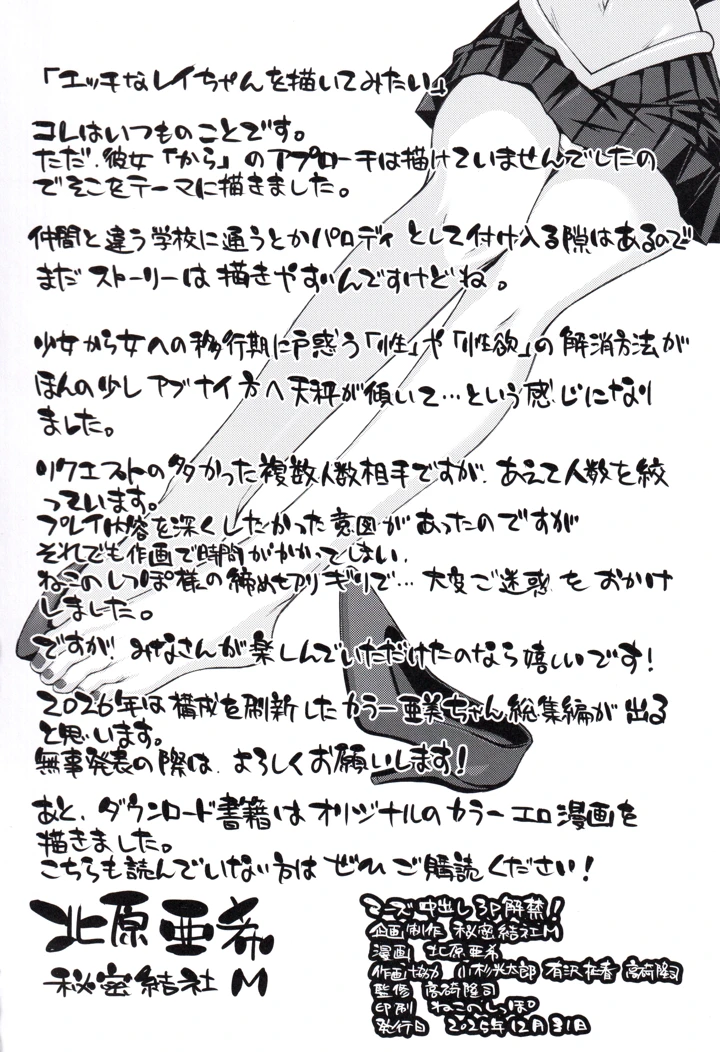 「エッチなレイちゃんを描いてみたい」
コレはいつものことです。
ただ、彼女「から」のアプローチは描けていませんでしたの
でそこをテーマに描きました。
仲間と違う学校に通うとかパロディとして付け入る隙はあるので
まだストーリーは描きやすいんですけどね。
少女から女への移行期に戸惑う「性」や「性欲」の解消方法が
ほんの少しアブナイ方へ天秤が傾いて…という感じになり
ました。
リクエストの多かった複数人数相手ですが、あえて人数を絞
っています。
プレイ内容を深くしたかった意図があったのですが
それでも作画で時間がかかってしまい、
ねこのしっぽ様の締めもギリギリで…大変ご迷惑をおかけ
しました。
ですが、みなさんが楽しんでいただけたのなら嬉しいです!
2026年は構成を刷新したカラー亜美ちゃん総集編が出る
と思います。
無事発表の際は、よろしくお願いします!
あと、ダウンロード書籍はオリジナルのカラーエロ漫画を
描きました。
こちらも読んでいない方はぜひご購読ください!
北原亜希
秘密結社M
マーズ中出し3P解禁!
企画制作 秘密結社M
漫画 北原亜希
作画協力 小杉光太郎 有沢桂香 高荷隆司
監修 高荷隆司
印刷 ねこのしっぽ
発行日 2025年12月31日